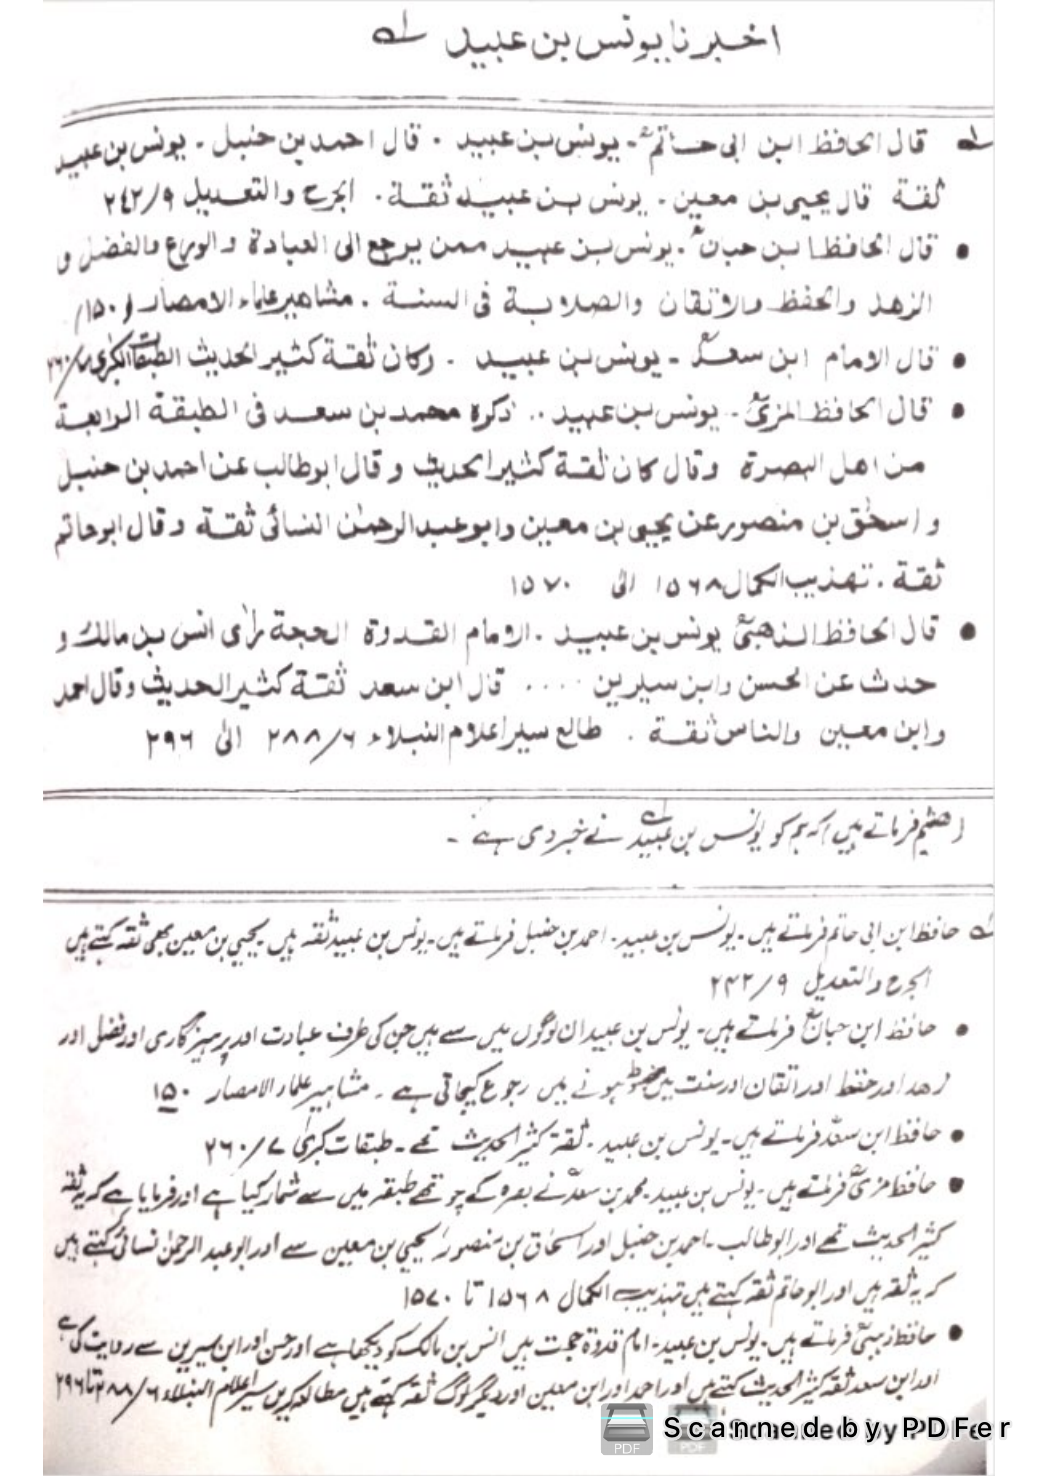 اخبرنا یونس بن عبید لہ
لہ قال الحافظ ابن ابی حاتمؒ۔ یونس بن عبید ۔ قال احمد بن حنبل ۔ یونس بن عبید
ثقة قال یحیی بن معین ۔ یونس بن عبید ثقة ۔ الجرح والتعدیل ۲٤۲/۹
• قال الحافظ ابن حبانؒ ۔ یونس بن عبید ممن یرجع الی العبادة والورع والفضل و
الزهد والحفظ والاتقان والصلابة فی السنة ۔ مشاهیر علماء الامصار /۱۵۰/
• قال الامام ابن سعدؒ ۔ یونس بن عبید ۔ وکان ثقة کثیر الحدیث الطبقات الکبری ۲٦۰/۷
• قال الحافظ المزیؒ ۔ یونس بن عبید ۔۔ ذکرہ محمد بن سعد فی الطبقة الرابعة
من اهل البصرة وقال کان ثقة کثیر الحدیث وقال ابو طالب عن احمد بن حنبل
و اسحٰق بن منصور عن یحیی بن معین وابو عبد الرحمٰن النسائی ثقة وقال ابو حاتم
ثقة ۔ تهذیب الکمال ۱۵٦۸ الیٰ ۱۵۷۰
• قال الحافظ الذهبیؒ یونس بن عبید ۔ الامام القدوة الحجة رأی انس بن مالك و
حدث عن الحسن وابن سیرین .... قال ابن سعد ثقة کثیر الحدیث وقال احمد
وابن معین والناس ثقة ۔ طالع سیر اعلام النبلاء ۲۸۸/٦ الیٰ ۲۹٦
(هشیم فرماتے ہیں) کہ ہم کو یونس بن عبید لہ نے خبر دی ہے ۔
لہ حافظ ابن ابی حاتم فرماتے ہیں ۔ یونس بن عبید ۔ احمد بن حنبل فرماتے ہیں ۔ یونس بن عبید ثقہ ہیں ۔ یحیی بن معین بھی ثقہ کہتے ہیں
الجرح والتعدیل ۲۴۲/۹
• حافظ ابن حبانؒ فرماتے ہیں ۔ یونس بن عبید ان لوگوں میں سے ہیں جن کی طرف عبادت اور پرہیزگاری اور فضل اور
زهد اور حفظ اور اتقان اور سنت میں مضبوط ہونے میں رجوع کیجاتی ہے ۔ مشاہیر علماء الامصار ۱۵۰
• حافظ ابن سعدؒ فرماتے ہیں ۔ یونس بن عبید ۔ ثقة کثیر الحدیث تھے ۔ طبقات کبریٰ ۲۶۰/۷
• حافظ مزیؒ فرماتے ہیں ۔ یونس بن عبید ۔ محمد بن سعدؒ نے بصرہ کے چوتھے طبقہ میں سے شمار کیا ہے اور فرمایا ہے کہ یہ ثقہ
کثیر الحدیث تھے اور ابو طالب ۔ احمد بن حنبل اور اسحاق بن منصور یحیی بن معین سے اور ابو عبد الرحمٰن نسائیؒ کہتے ہیں
کہ یہ ثقہ ہیں اور ابو حاتم ثقہ کہتے ہیں تہذیب الکمال ۱۵۶۸ تا ۱۵۷۰
• حافظ ذہبیؒ فرماتے ہیں ۔ یونس بن عبید ۔ امام قدوة حجت ہیں انس بن مالک کو دیکھا ہے اور حسن اور ابن سیرین سے روایت کی ہے
اور ابن سعد ثقہ کثیر الحدیث کہتے ہیں اور احمد اور ابن معین اور دیگر لوگ ثقہ کہتے ہیں مطالعہ کریں سیر اعلام النبلاء ۲۸۸/۶ تا ۲۹۶
Scanned by PDFer